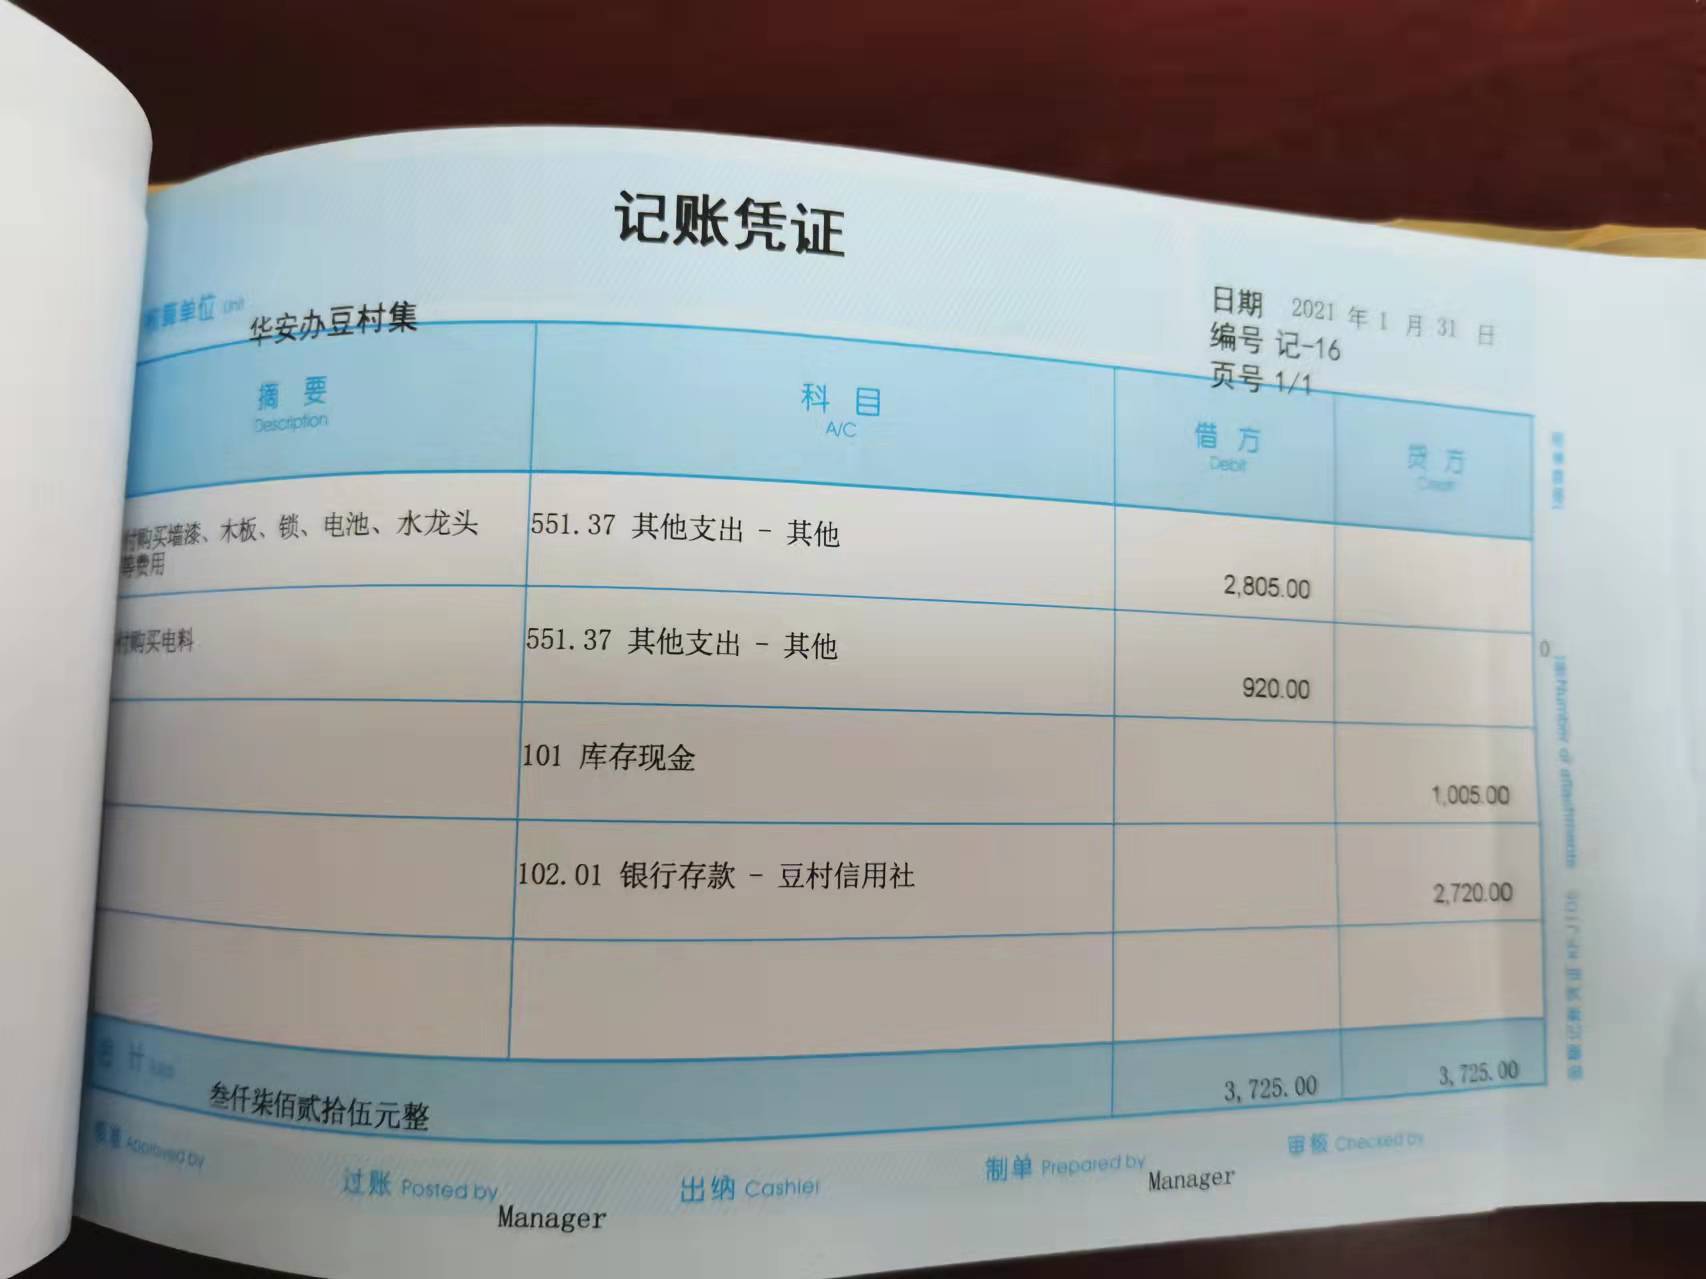 记账凭证
核算单位 Unit 华安办豆村集
日期 2021 年 1 月 31 日
编号 记-16
页号 1/1
摘 要 科 目 借 方 贷 方
Description A/C Debit Credit
付购买墙漆、木板、锁、电池、水龙头 551.37 其他支出 - 其他
等费用
2,805.00
付购买电料 551.37 其他支出 - 其他
920.00
101 库存现金
1,005.00
102.01 银行存款 - 豆村信用社
2,720.00
合 计 叁仟柒佰贰拾伍元整 3,725.00 3,725.00
核准 Approved by 过账 Posted by Manager 出纳 Cashier 制单 Prepared by Manager 审核 Checked by
0
张 Number of attachments